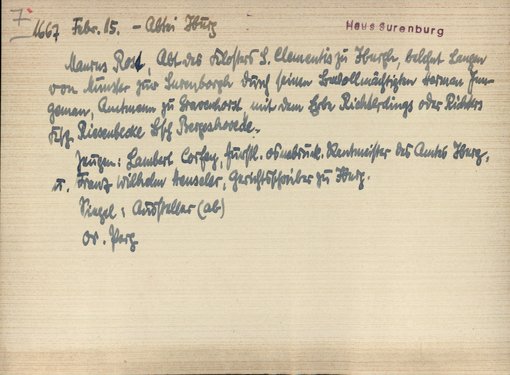 7
1667 Febr. 15. - Abtei Iburg
Haus Surenburg
Maurus Rost, Abt des Klosters S. Clementis zu Iburgh, belehnt
von zur Surenborgh durch seinen Bevollmächtigten Herman
Amtmann zu Gravenhorst mit dem Erbe Richterdings oder Richters
Ksp. Riesenbecke Bsch Bergeshovede.
Zeugen: Lambert fürstl. osnabrück. Rentmeister des Amts Iburg,
u. Franz Wilhelm Henseler, Gerichtsschreiber zu Iburg.
Siegel: Aussteller (ab)
Or. Perg